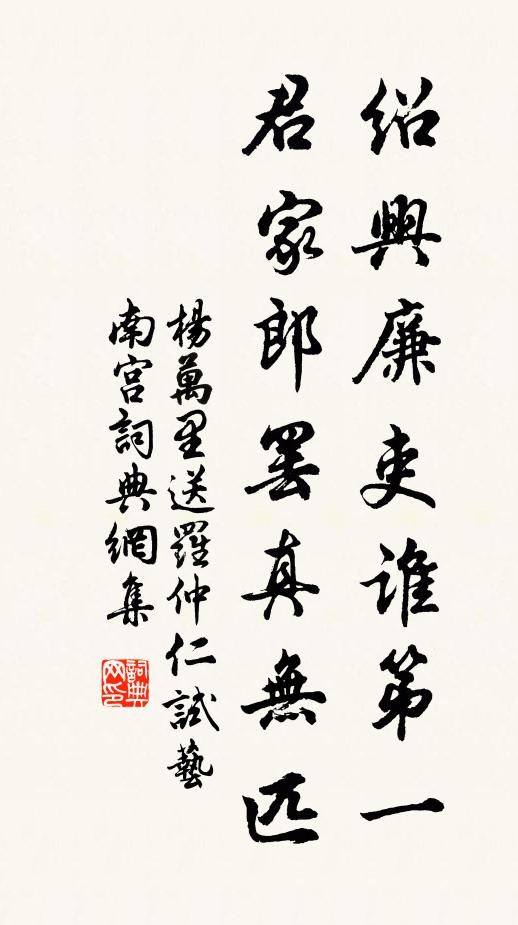 紹興廉吏誰第一
君家郎罷真無匹
楊萬里送羅仲仁試藝
南宮詞典網集
詞典
网印